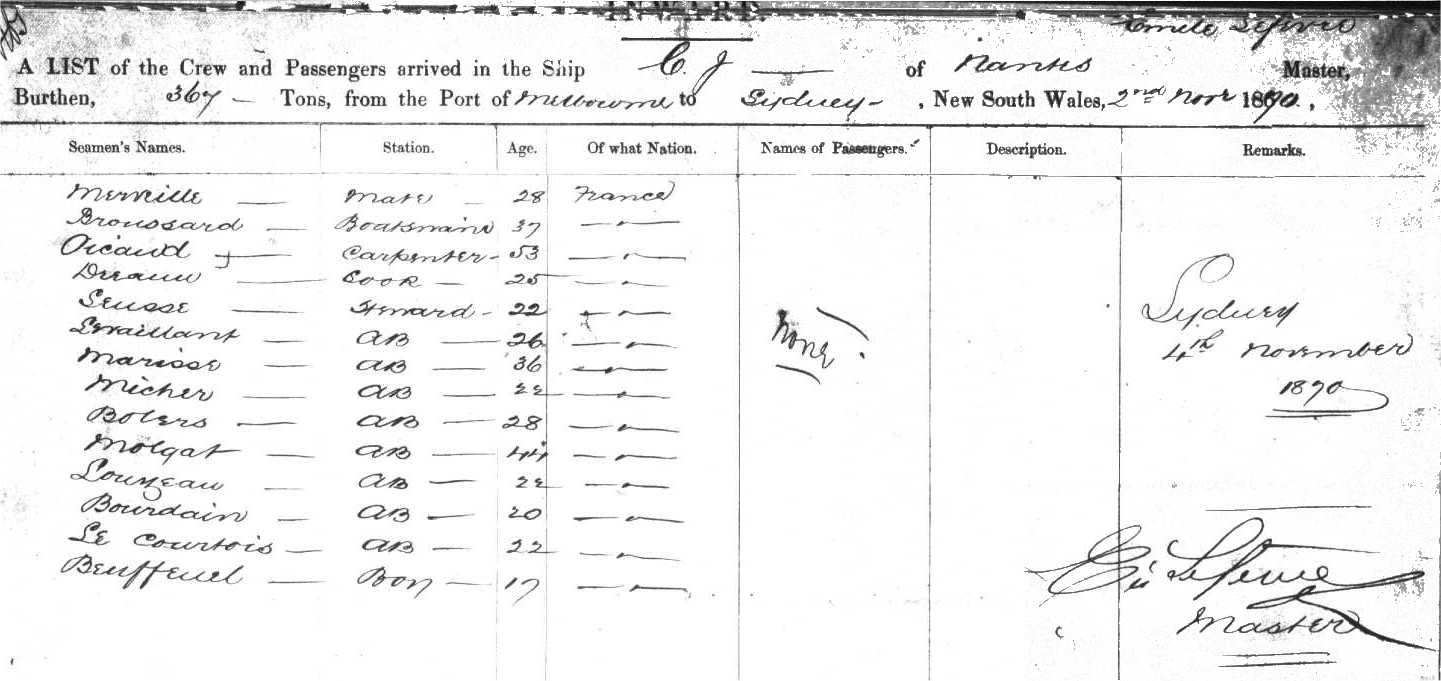 INWARD.
Emile Lefevre
A LIST of the Crew and Passengers arrived in the Ship C. J. — of Nantes Master,
Burthen, 367 – Tons, from the Port of Melbourne to Sydney – , New South Wales, 2nd Novr 1890.,
Seamen's Names. Station. Age. Of what Nation. Names of Passengers. Description. Remarks.
Merveille — Mate – 28 France
Broussard — Boatswain 37 — " —
Ricaud — Carpenter – 53 — " —
Cook — 25 — " —
Seusse — Steward – 22 — " —
Levaillant — AB — 26 — " —
Marisse — AB — 36 — " —
Micher — AB — 22 — " —
Bolers — AB — 28 — " —
Molgat — AB — 44 — " —
Louzeau — AB — 22 — " —
Bourdain — AB — 20 — " —
Le Courtois — AB — 22 — " —
Boy — 17 — " —
None.
Sydney
4th November
1890
Em Lefevre
Master